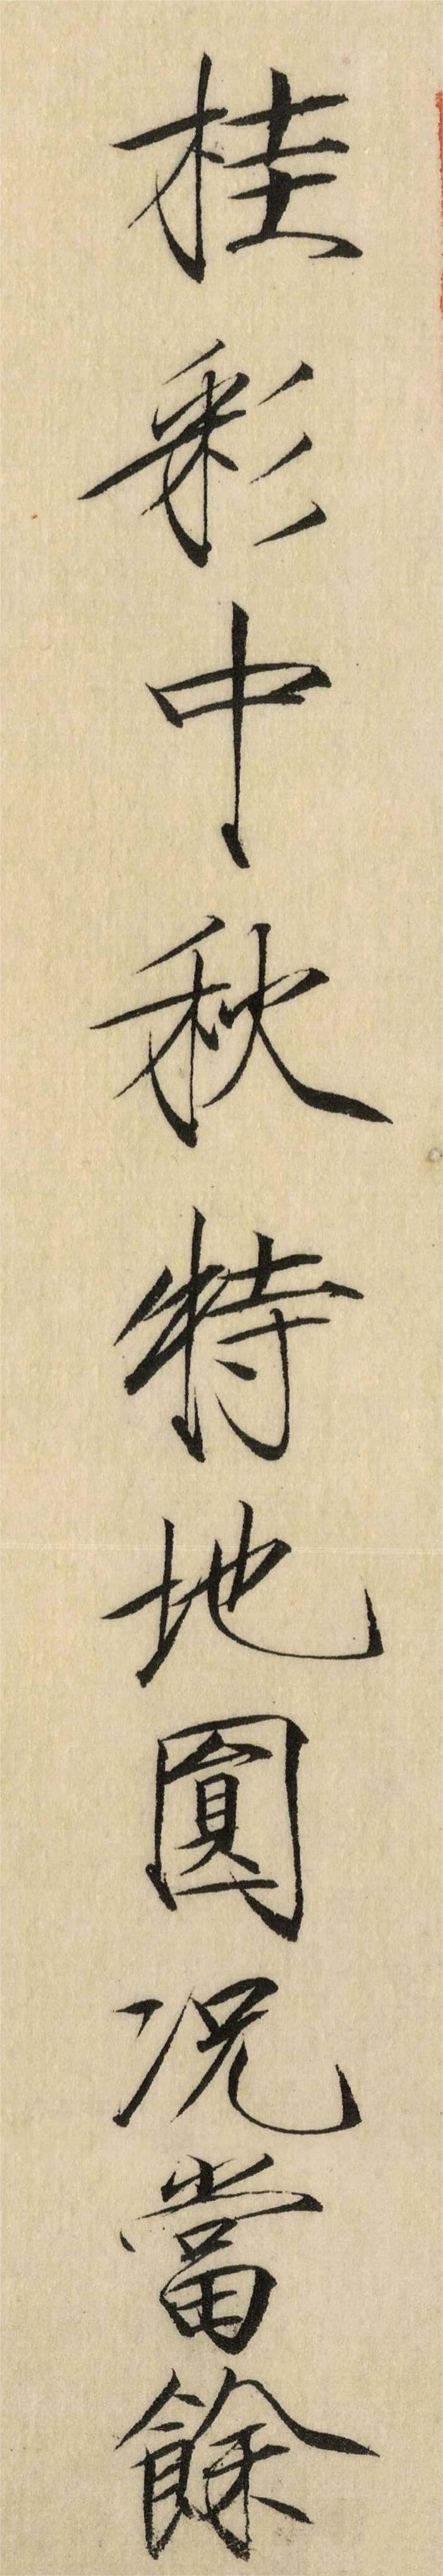 桂彩中秋特地圓况當餘